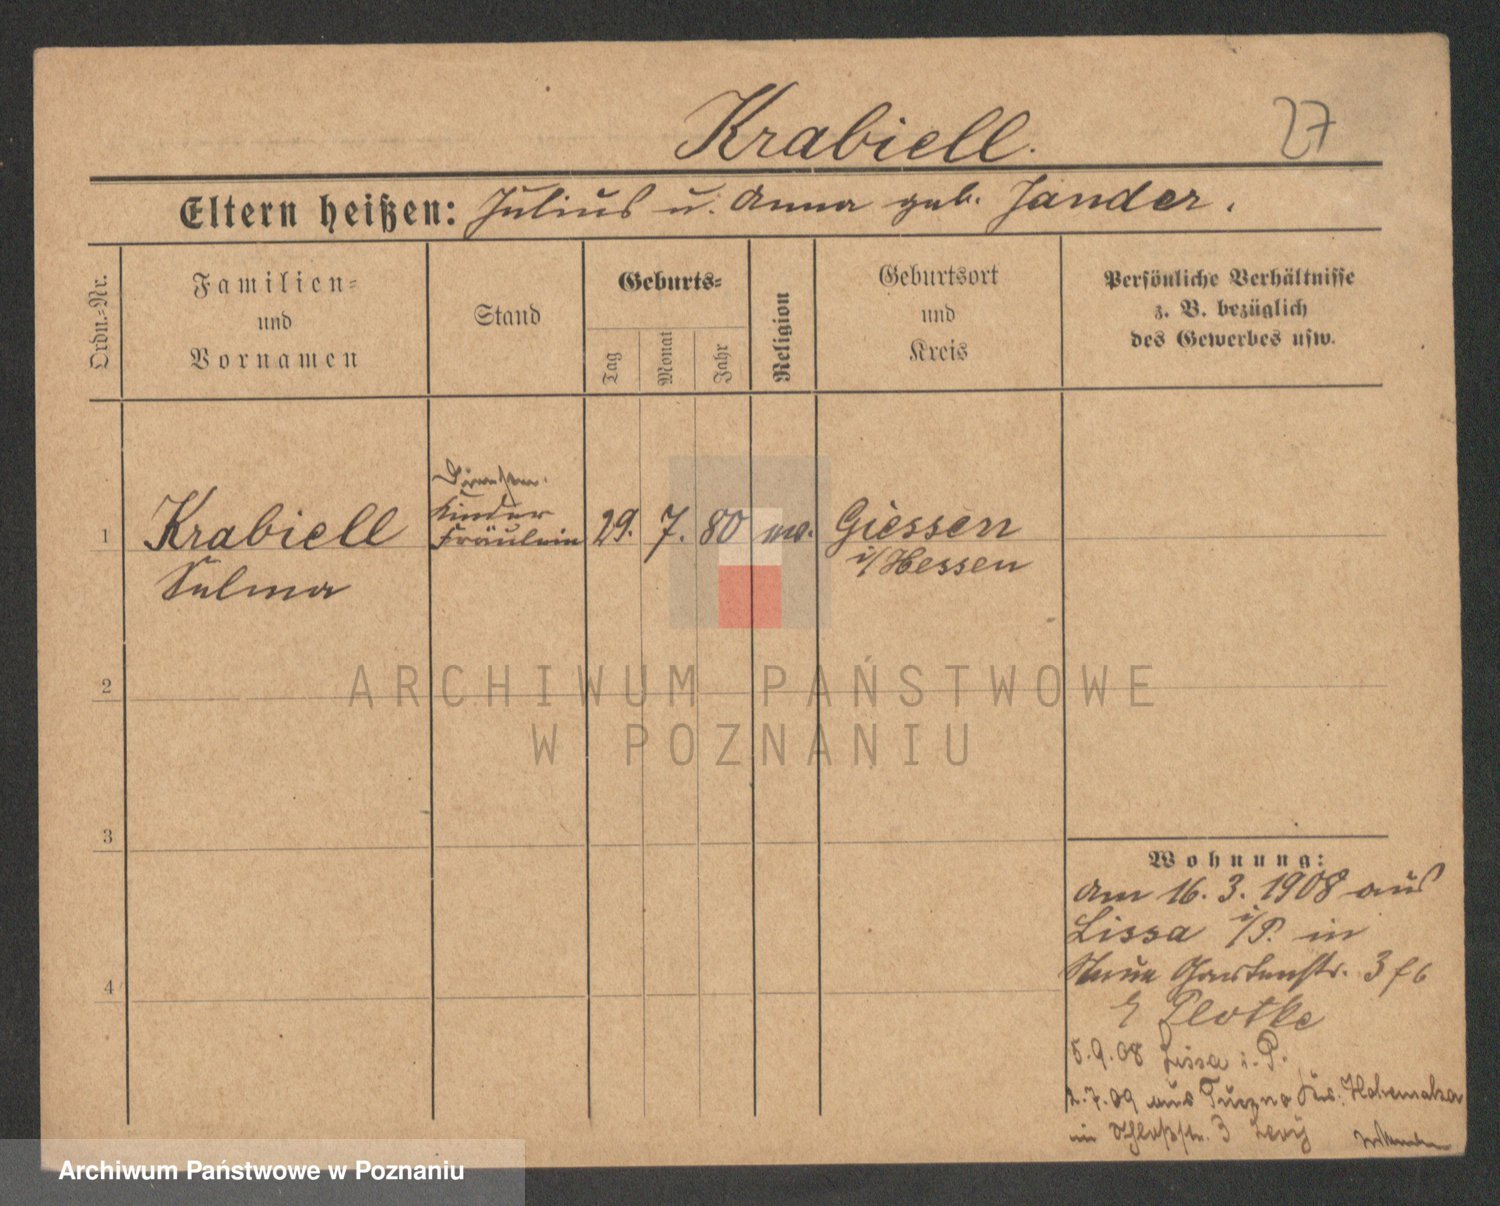 Krabiell.
27
Eltern heißen: Julius u. Anna geb. Jander.
Ordn.-Nr.
Familien-
und
Vornamen
Stand
Geburts-
Tag
Monat
Jahr
Religion
Geburtsort
und
Kreis
Persönliche Verhältnisse
z. B. bezüglich
des Gewerbes usw.
1
Krabiell
Selma
Kinder
Fräulein
29.
7.
80
Giessen
i/Hessen
2
3
4
ARCHIWUM PAŃSTWOWE
W POZNANIU
Wohnung:
am 16. 3. 1908 aus
Lissa i/P. in
Neue Gartenstr. 3
Plotke
5.9.08 Lissa i. P.
2.7.09 aus
in Schloßstr. 3 Levy
Archiwum Państwowe w Poznaniu